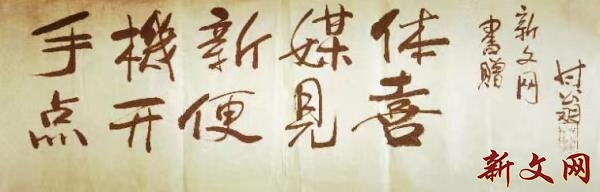 手機新媒体
点开便見喜
新文网
書赠
新文网